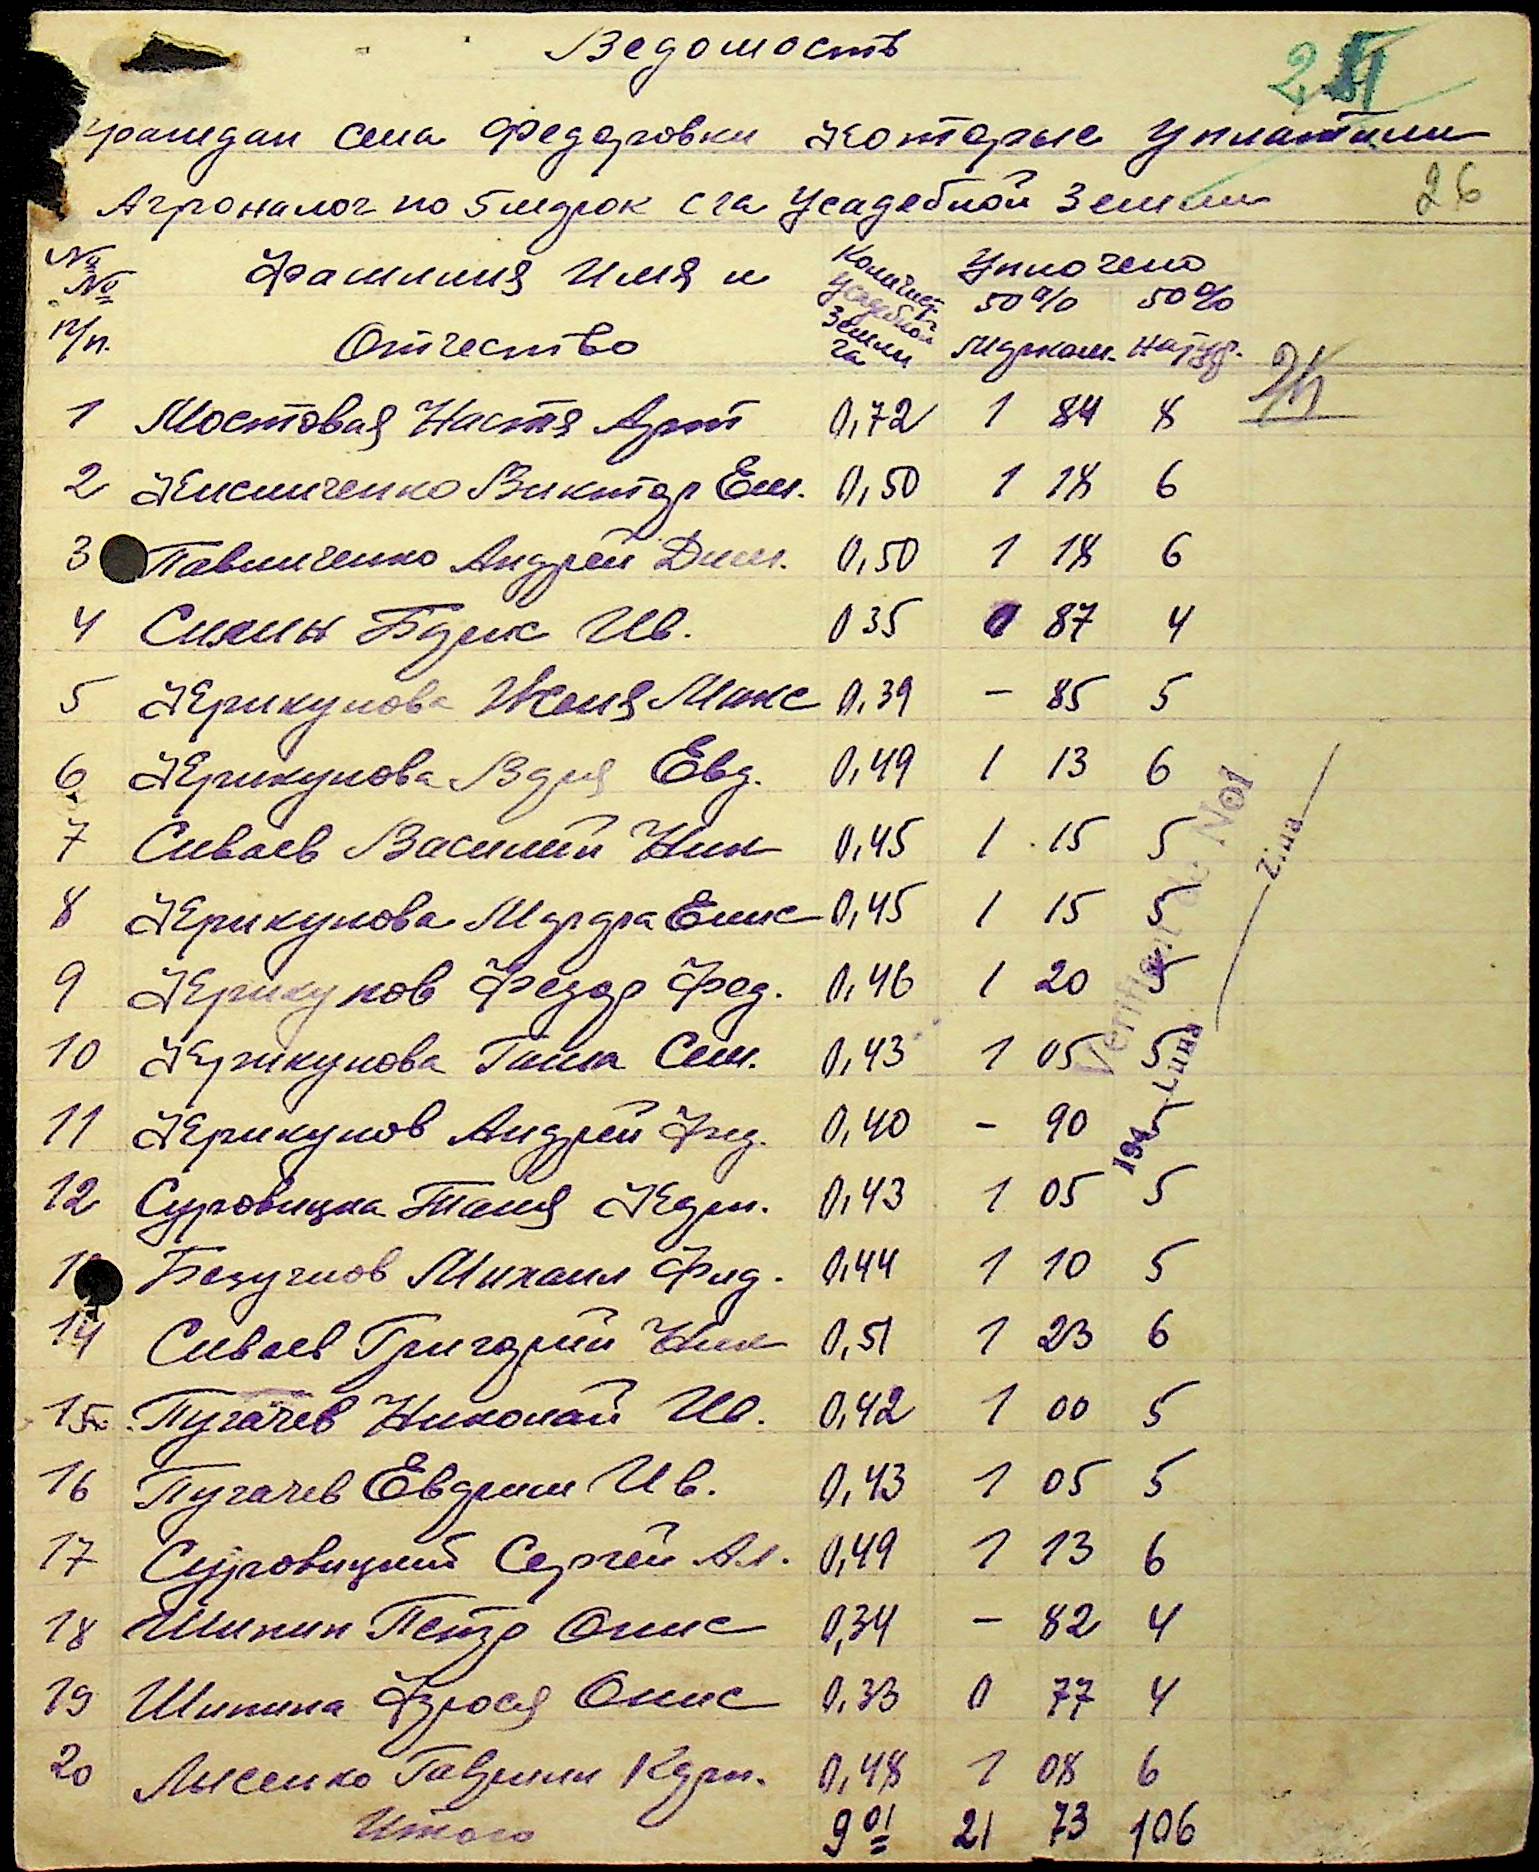 Ведомость
2
граждан села Федоровки Которые Уплатили
Агроналог по 5 марок с га Усадебной Земли
26
№ № п/п. Фамилия Имя и Отчество Количест. Усадебной Земли га Уплочено 50% Маркам. 50% Натур.
1 Мостовая Настя Арт 0,72 1 84 8
2 Кисличенко Виктор Ем. 0,50 1 18 6
3 Павличенко Андрей Дим. 0,50 1 18 6
4 Силин Борис Ив. 0 35 0 87 4
5 Керикунова Женя Макс 0,39 - 85 5
6 Керикунова Варя Евд. 0,49 1 13 6
7 Сиваев Василий Ник 0,45 1 15 5
8 Керикунова Марфа Елис 0,45 1 15 5
9 Керикунов Федор Фед. 0,46 1 20 5
10 Керикунова Таила Сем. 0,43 1 05 5
11 Керикунов Андрей Фед. 0,40 - 90 5
12 Суровицка Таня Корн. 0,43 1 05 5
Михаил Фед. 0,44 1 10 5
14 Сиваев Григорий Ник 0,51 1 23 6
15 Пугачев Николай Ив. 0,42 1 00 5
16 Пугачев Евдоким Ив. 0,43 1 05 5
17 Суровицкий Сергей Ал. 0,49 1 13 6
18 Шипин Петр Онис 0,34 - 82 4
19 Шипина Фрося Онис 0,33 0 77 4
20 Лысенко Гаврил Корн. 0,48 1 08 6
Итого 9 01 21 73 106
Verificat de No1
194 Luna Ziua